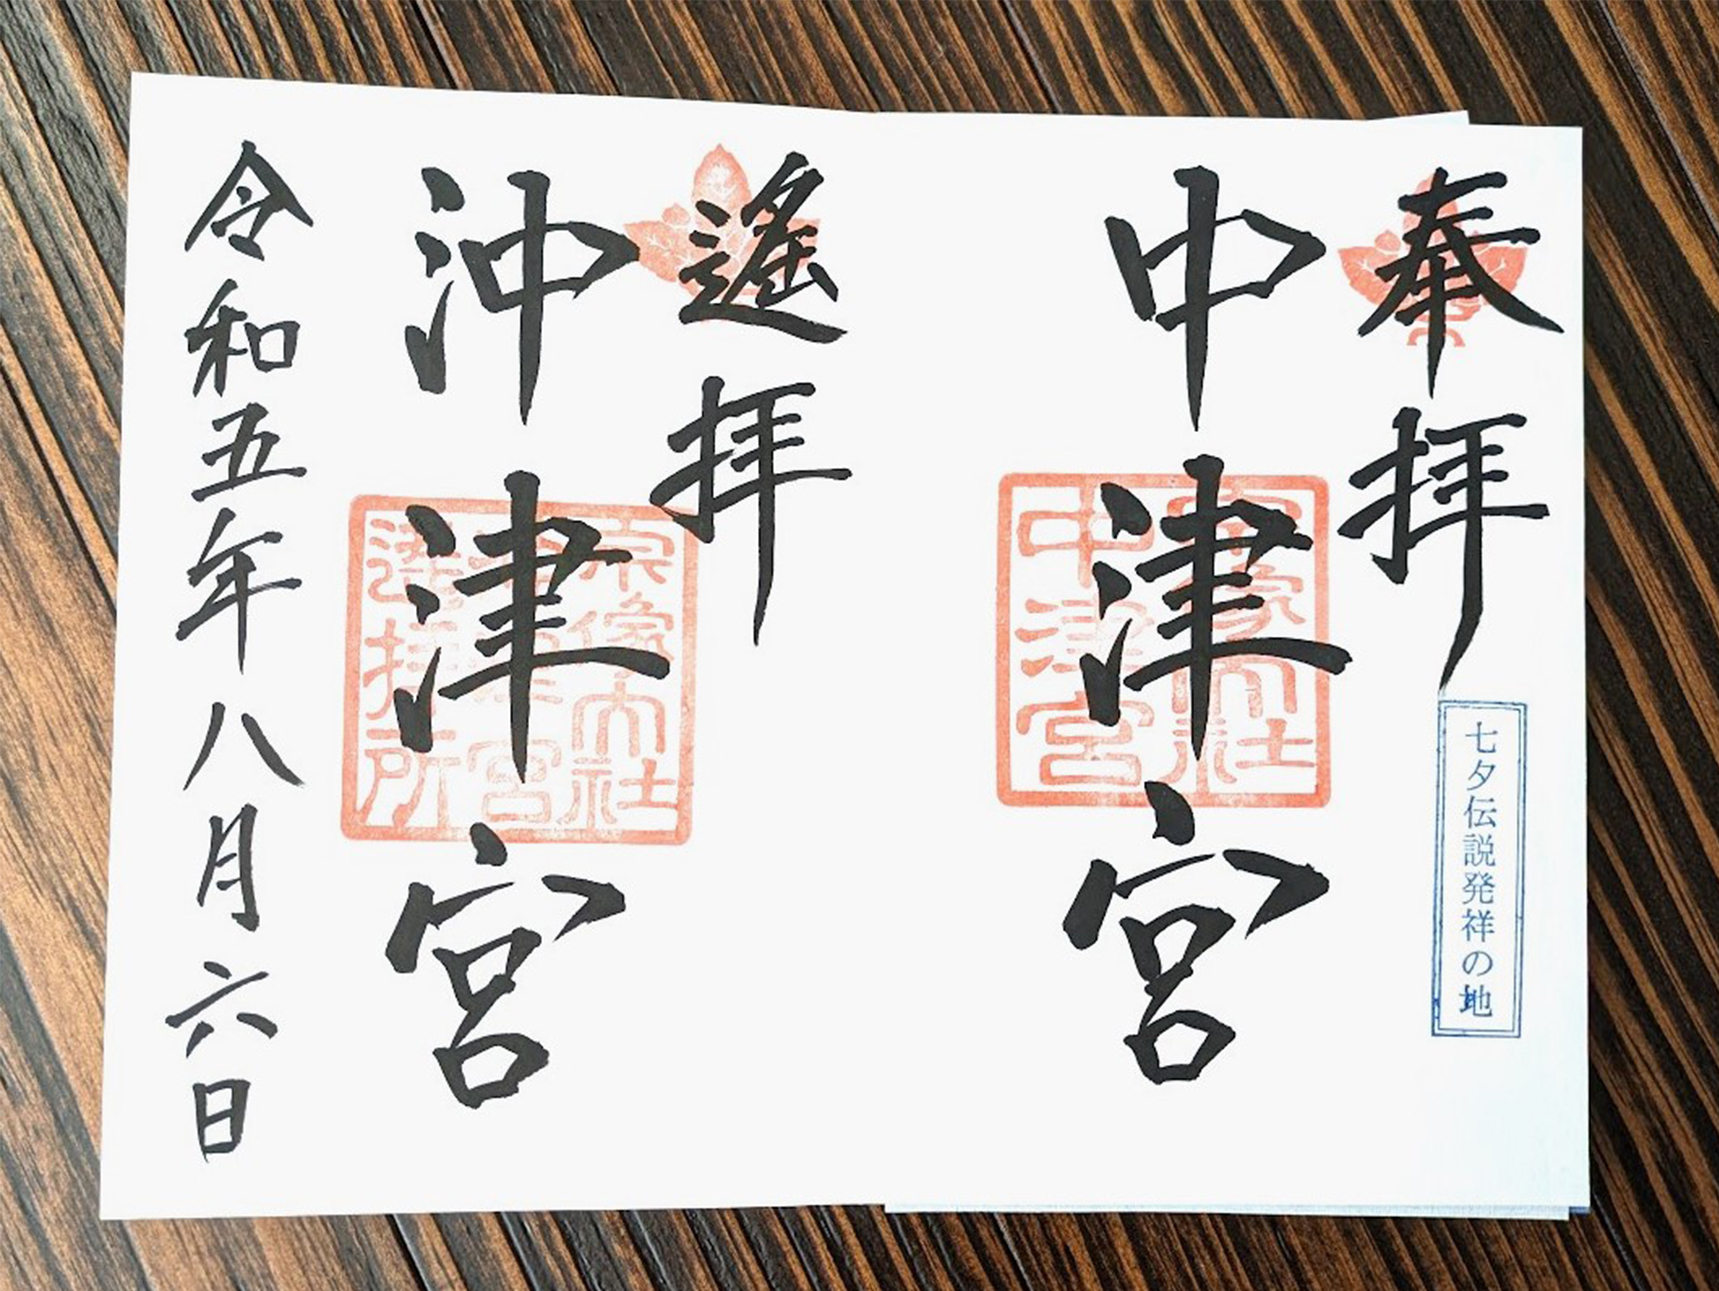 奉拝
七夕伝説発祥の地
宗像大社
中津宮
中津宮
遙拝
宗像大社
沖津宮
遙拝所
沖津宮
令和五年八月六日